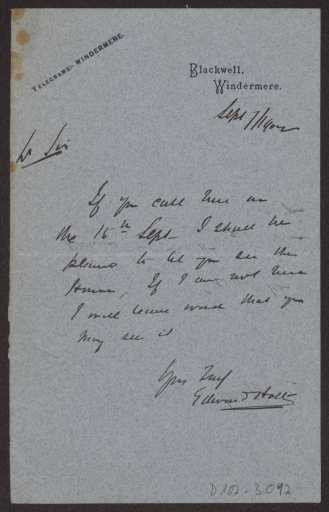 TELEGRAMS: WINDERMERE.
Blackwell,
Windermere.
Sept 7/1902
Dr Sir
If you call here on
the 16th Sept I shall be
pleased to let you see the
House, If I am not here
I will leave word that you
may see it
Yrs Truly
Edward Holt
D102-3092